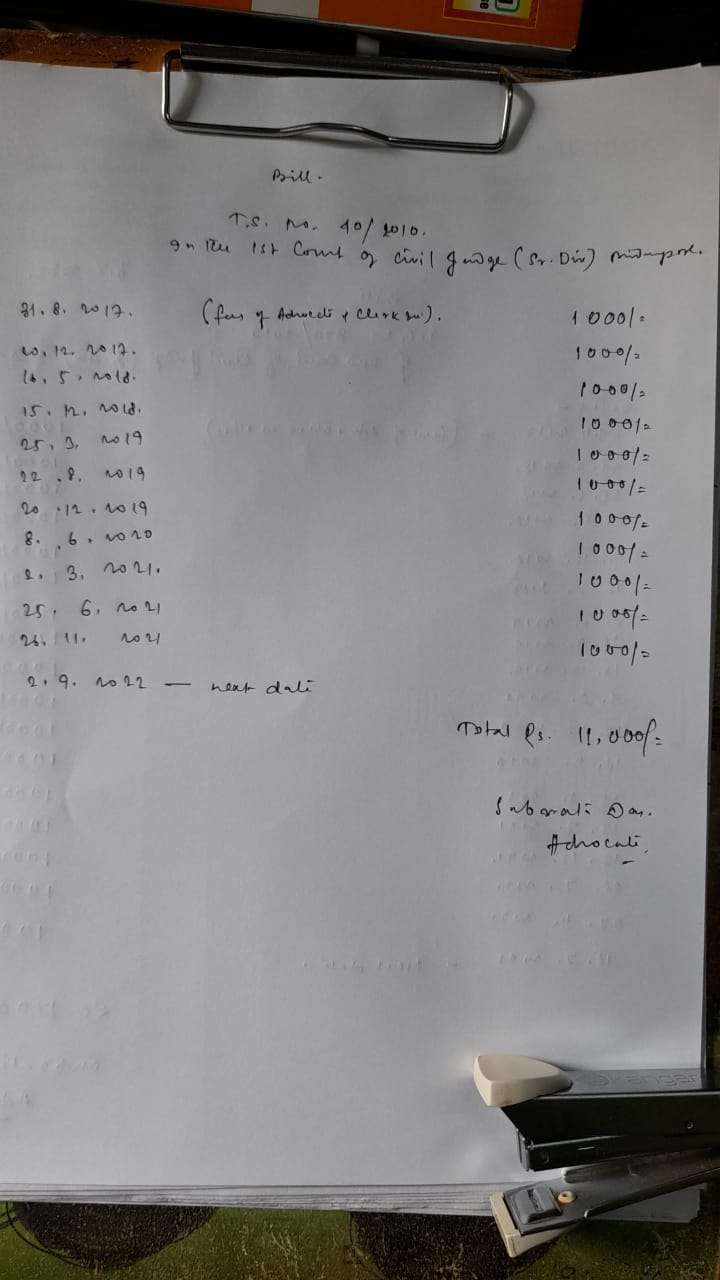 Bill.
T.S. No. 40/2010.
In the 1st Court of Civil Judge (Sr. Div) Midnapore.
31. 8. 2017. (fees of Advocate & Clerk ) . 1000/=
20. 12. 2017. 1000/=
16. 5. 2018. 1000/=
15. 12. 2018. 1000/=
25. 3. 2019 1000/=
22. 8. 2019 1000/=
20. 12. 2019 1000/=
8. 6. 2020 1000/=
2. 3. 2021. 1000/=
25. 6. 2021 1000/=
26. 11. 2021 1000/=
2. 9. 2022 — next date
Total Rs. 11,000/=
Das.
Advocate.
Kangaro